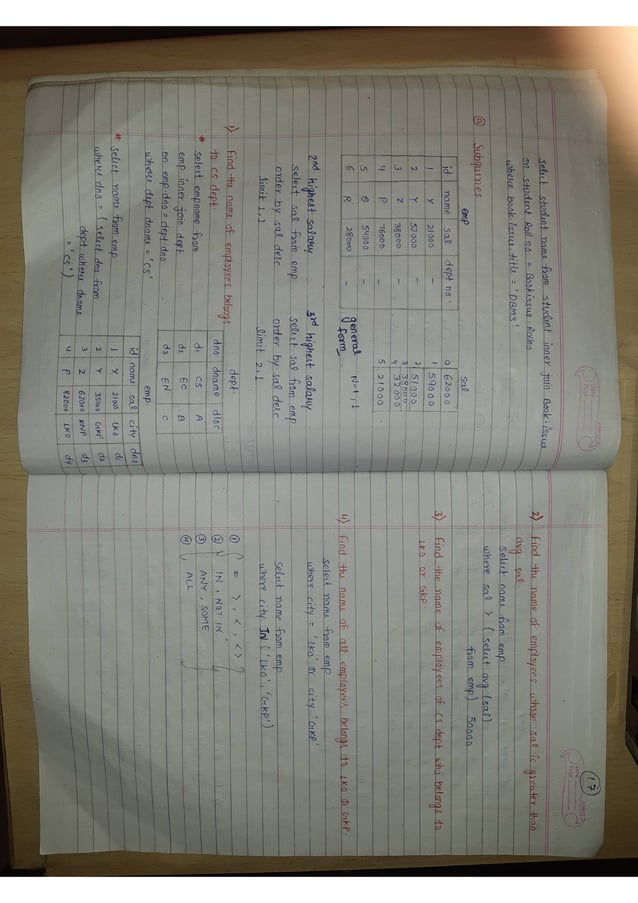 Select student name from student inner join Book.issue
on student Roll no = Bookissue.Rollno
where book Issue title = 'DBMS'
@ Subqurries
emp
id name sal dept no.
1 X 21000 -
2 Y 52000 -
3 Z 38000 -
4 P 76000 -
5 Q 54000 -
6 R 28000 -
sal
0 62000
1 59000
2 51000
3 39000
4 32000
5 21000
2nd highest salary
select sal from emp
order by sal desc
limit 1,1
3rd highest salary
select sal from emp
order by sal desc
limit 2,1
general
form
N-1, 1
1) Find the name of employees belongs
to cs dept
* select empname from
emp inner join dept
on emp.dno = dept.dno
where dept dname = 'cs'
* select name from emp
where dno = (select dno from
dept where dname
= 'cs')
dept.
dno dname dloc
d1 CS A
d2 EC B
d3 EN C
emp.
id name sal city dno
1 X 2100 LKO d1
2 Y 35000 GKP d2
3 Z 62000 KNP d3
4 P 82000 LKO d4
17
2) Find the name of employees whose sal is greater than
avg sal.
select name from emp
where sal > (select avg (sal)
from emp) 50000
3) Find the name of employees of cs dept who belongs to
LKO or GKP.
4) Find the name of all employees belongs to LKO or GKP.
select name from emp
where city = 'LKO' or city 'GKP'
Select name from emp
where city IN ('LKO', 'GKP')
① = >, <, <>
② IN, NOT IN
③ ANY, SOME
④ ALL